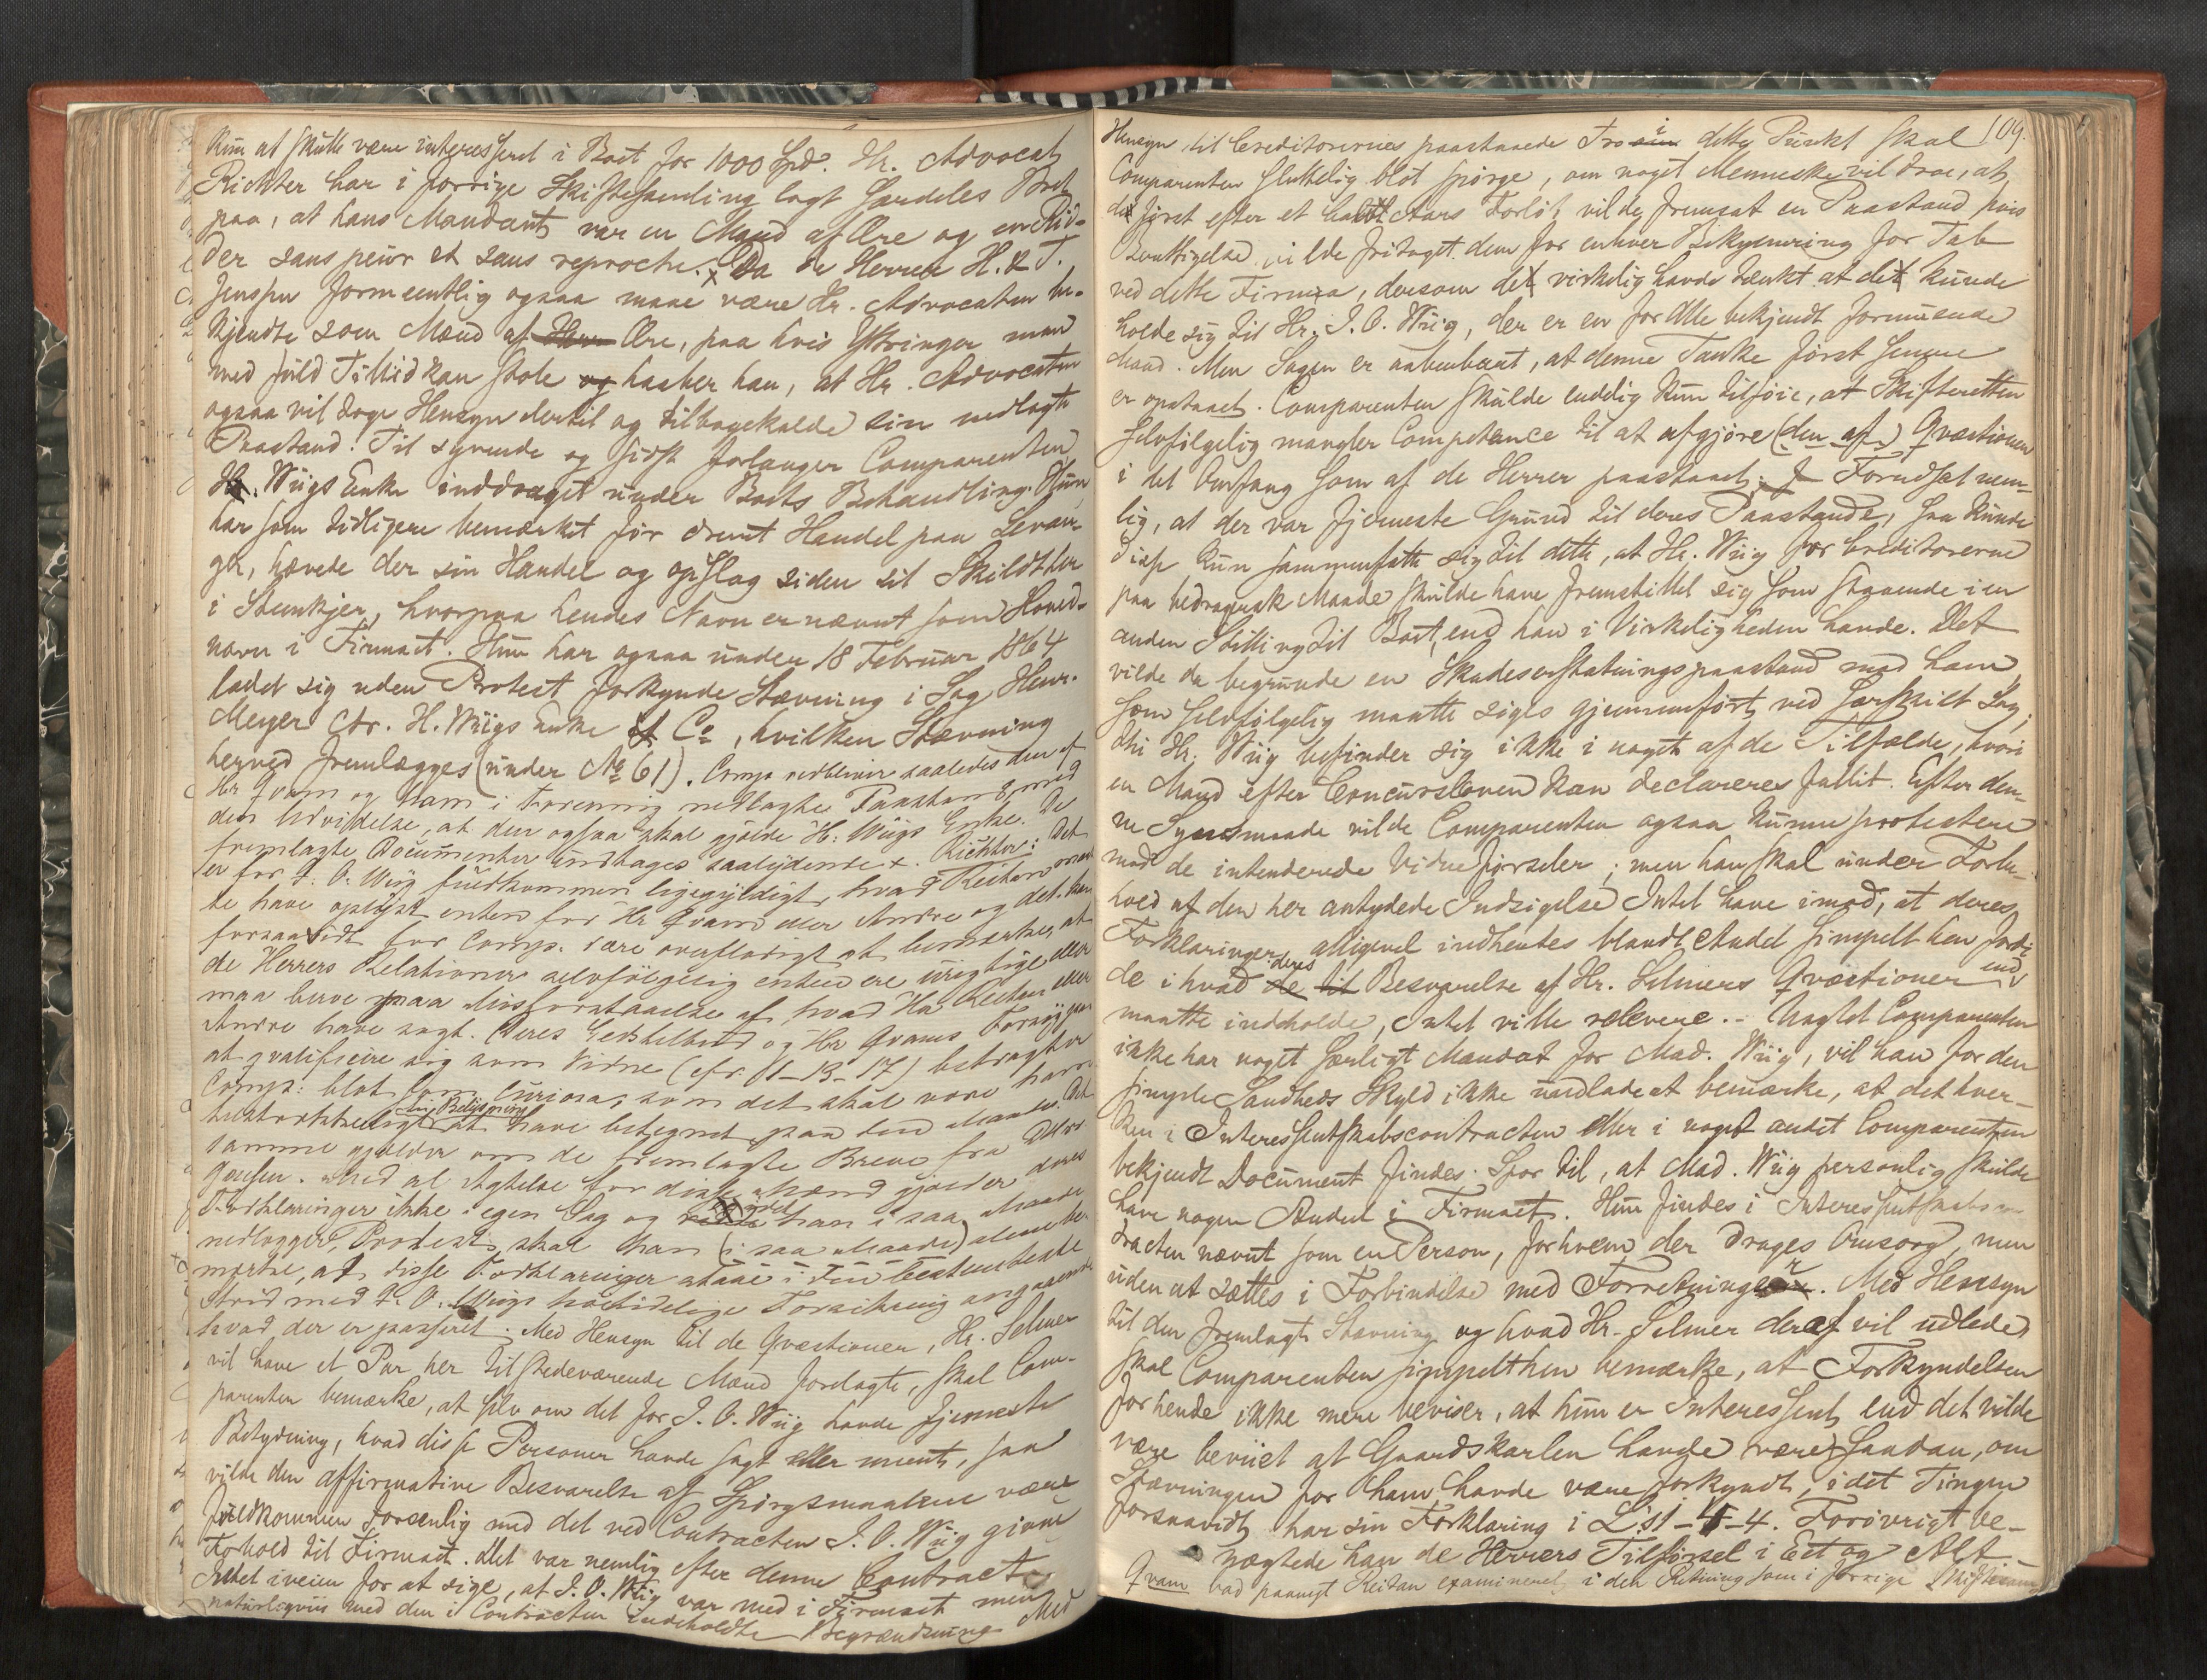 kun at skulle være interesseret i Boet for 1000 Spd. Hr. Advocat
Richter har i forrige Skiftesamling lagt særdeles Vægt
paa, at hans Mandant var en Mand af Ære og en Rid-
der sans peur et sans reproche. Da de Herrer H. & T.
Jenssen formeentlig ogsaa maae være Hr. Advocaten be-
kjendte som Mænd af Ære, paa hvis Ytringer man
med fuld Tillid kan stole haaber han, at Hr. Advocaten
ogsaa vil tage Hensyn dertil og tilbagekalde sin nedlagte
Paastand. Til syvende og sidst forlanger Comparenten
H. Wiigs Enke inddraget under Boets Behandling. Hun
har som tidligere bemærket før drevet Handel paa Levan-
ger, hævede der sin Handel og opslog siden sit Skildt her
i Steenkjer, hvorpaa hendes Navn er nævnt som Hoved-
navn i Firmaet. Hun har ogsaa under 18 Februar 1864
ladet sig uden Protest forkynde Stævning i Sag Henr.
Meyer ctr. H. Wiigs Enke & Co, hvilken Stævning
herved fremlægges (under No 61). Comp. nedlever saaledes den af
Hr Qvam og ham i Forening nedlagte Paastand med
den Udvidelse, at den ogsaa skal gjælde H. Wiigs Enke. De
fremlagte Documenter indtages saalydende x. Richter: Det
er for J. O. Wiig fuldkommen ligegyldigt, hvad Reitan maat
te have oplyst enten for Hr Qvam eller Andre og det kan
forsaavidt for Comp. være overflødigt at bemærke, at
de Herrers Relationer selvfølgelig enten ere urigtige eller
maa beroe paa Misforstaaelse af, hvad Hr. Reitan eller
Andre have sagt. Deres og Hr Qvams Forsøg paa
at qvalificere sig som Vidne (cfr. 1-13-17) betragter
Comp: blot som Curiosa, som det skal være ham
at have betegnet paa den Maade. Det
samme gjælder om de fremlagte Breve fra DHrr
Jenssen. Med al Agtelse for disse Mænd gjælder deres
Forklaringer ikke i egen Sag og han i saa Maade
nedlægger Protest, skal han (i saa Maade) alene be-
mærke, at disse Forklaringer staae i den bestemteste
Strid med J. O. Wiigs høitidelige Forsikring angaaende
hvad der er passeret. Med Hensyn til de Qvæstioner, Hr. Selmer
vil have et Par her tilstedeværende Mænd forelagte, skal Com-
parenten bemærke, at selv om det for J. O. Wiig havde fjerneste
Betydning, hvad disse Personer havde sagt eller meent, saa
vilde den affirmative Besvarelse af Spørgsmaalene være
fuldkommen forenelig med det ved Contracten J. O. Wiig givne
Forhold til Firmaet. Det var nemlig efter denne Contract
Intet iveien for at sige, at J. O. Wiig var med i Firmaet men
naturligviis med den i Contracten indeholdte Begrændsning. Med
109.
Hensyn til Creditorernes paastaaede Tro i dette Punkt skal
Comparenten sluttelig blot spørge, om noget Menneske vil troe, at
de først efter et halvt Aars Forløb vilde fremsat en Paastand hvis
Berettigelse vilde fritaget dem for enhver Bekymring for Tab
ved dette Firma, dersom de virkelig havde tænkt at de kunde
holde sig til Hr. J. O. Wiig, der er en for Alle bekjendt formuende
Mand. Men Sagen er aabenbart, at denne Tanke først senere
er opstaaet. Comparenten skulde endelig kun tilføie, at Skifteretten
selvfølgelig mangler Competance til at afgjøre (den af) Qvæstionen
i det Omfang som af de Herrer paastaaet. Forudsat nem-
lig, at der var fjerneste Grund til deres Paastande, saa kunde
disse kun sammenfatte sig til dette, at Hr. Wiig for Creditorerne
paa bedragersk Maade skulde have fremstillet sig som staaende i en
anden Stilling til Boet, end han i Virkeligheden havde. Det
vilde da begrunde en Skadeserstatningspaastand mod ham,
som selvfølgelig maatte siges gjennemført ved særskilt Sag,
thi Hr. Wiig befinder sig ikke i noget af de Tilfælde, hvori
en Mand efter Concursloven kan declareres fallit. Efter den-
ne Synsmaade vilde Comparenten ogsaa kunne protestere
mod de intenderede Vidneførseler; men han skal under Forbe-
hold af den her antydede Indsigelse Intet have imod, at deres
Forklaringer alligevel indhentes blandt Andet simpelt hen fordi
de i hvad deres Besvarelse af Hr. Selmers Qvæstioner end
maatte indholde, Intet ville relevere. - Uagtet Comparenten
ikke har noget særligt Mandat for Mad. Wiig, vil han for den
simple Sandheds Skyld ikke undlade at bemærke, at det hver-
ken i Interessentskabscontracten eller i noget andet Comparenten
bekjendt Document findes Spor til, at Mad. Wiig personlig skulde
have nogen Andeel i Firmaet. Hun findes i Interessentskabscon-
tracten nævnt som en Person, for hvem der drages Omsorg, men
uden at sættes i Forbindelse med Forretninger. Med Hensyn
til den fremlagte Stævning og hvad Hr. Selmer deraf vil udlede
skal Comparenten simpelthen bemærke, at Forkyndelsen
for hende ikke mere beviser, at hun er Interessent, end det vilde
være beviist at Gaardskarlen havde været saadan, om
Stævningen for ham havde været forkyndt, idet Tingen
forsaavidt har sin Forklaring i L's 1-4-4. Forøvrigt be-
nægtede han de Herrers Tilførsel i Eet og Alt.
Qvam bad paanyt Reitan examineret i den Retning som i forrige Skiftesam